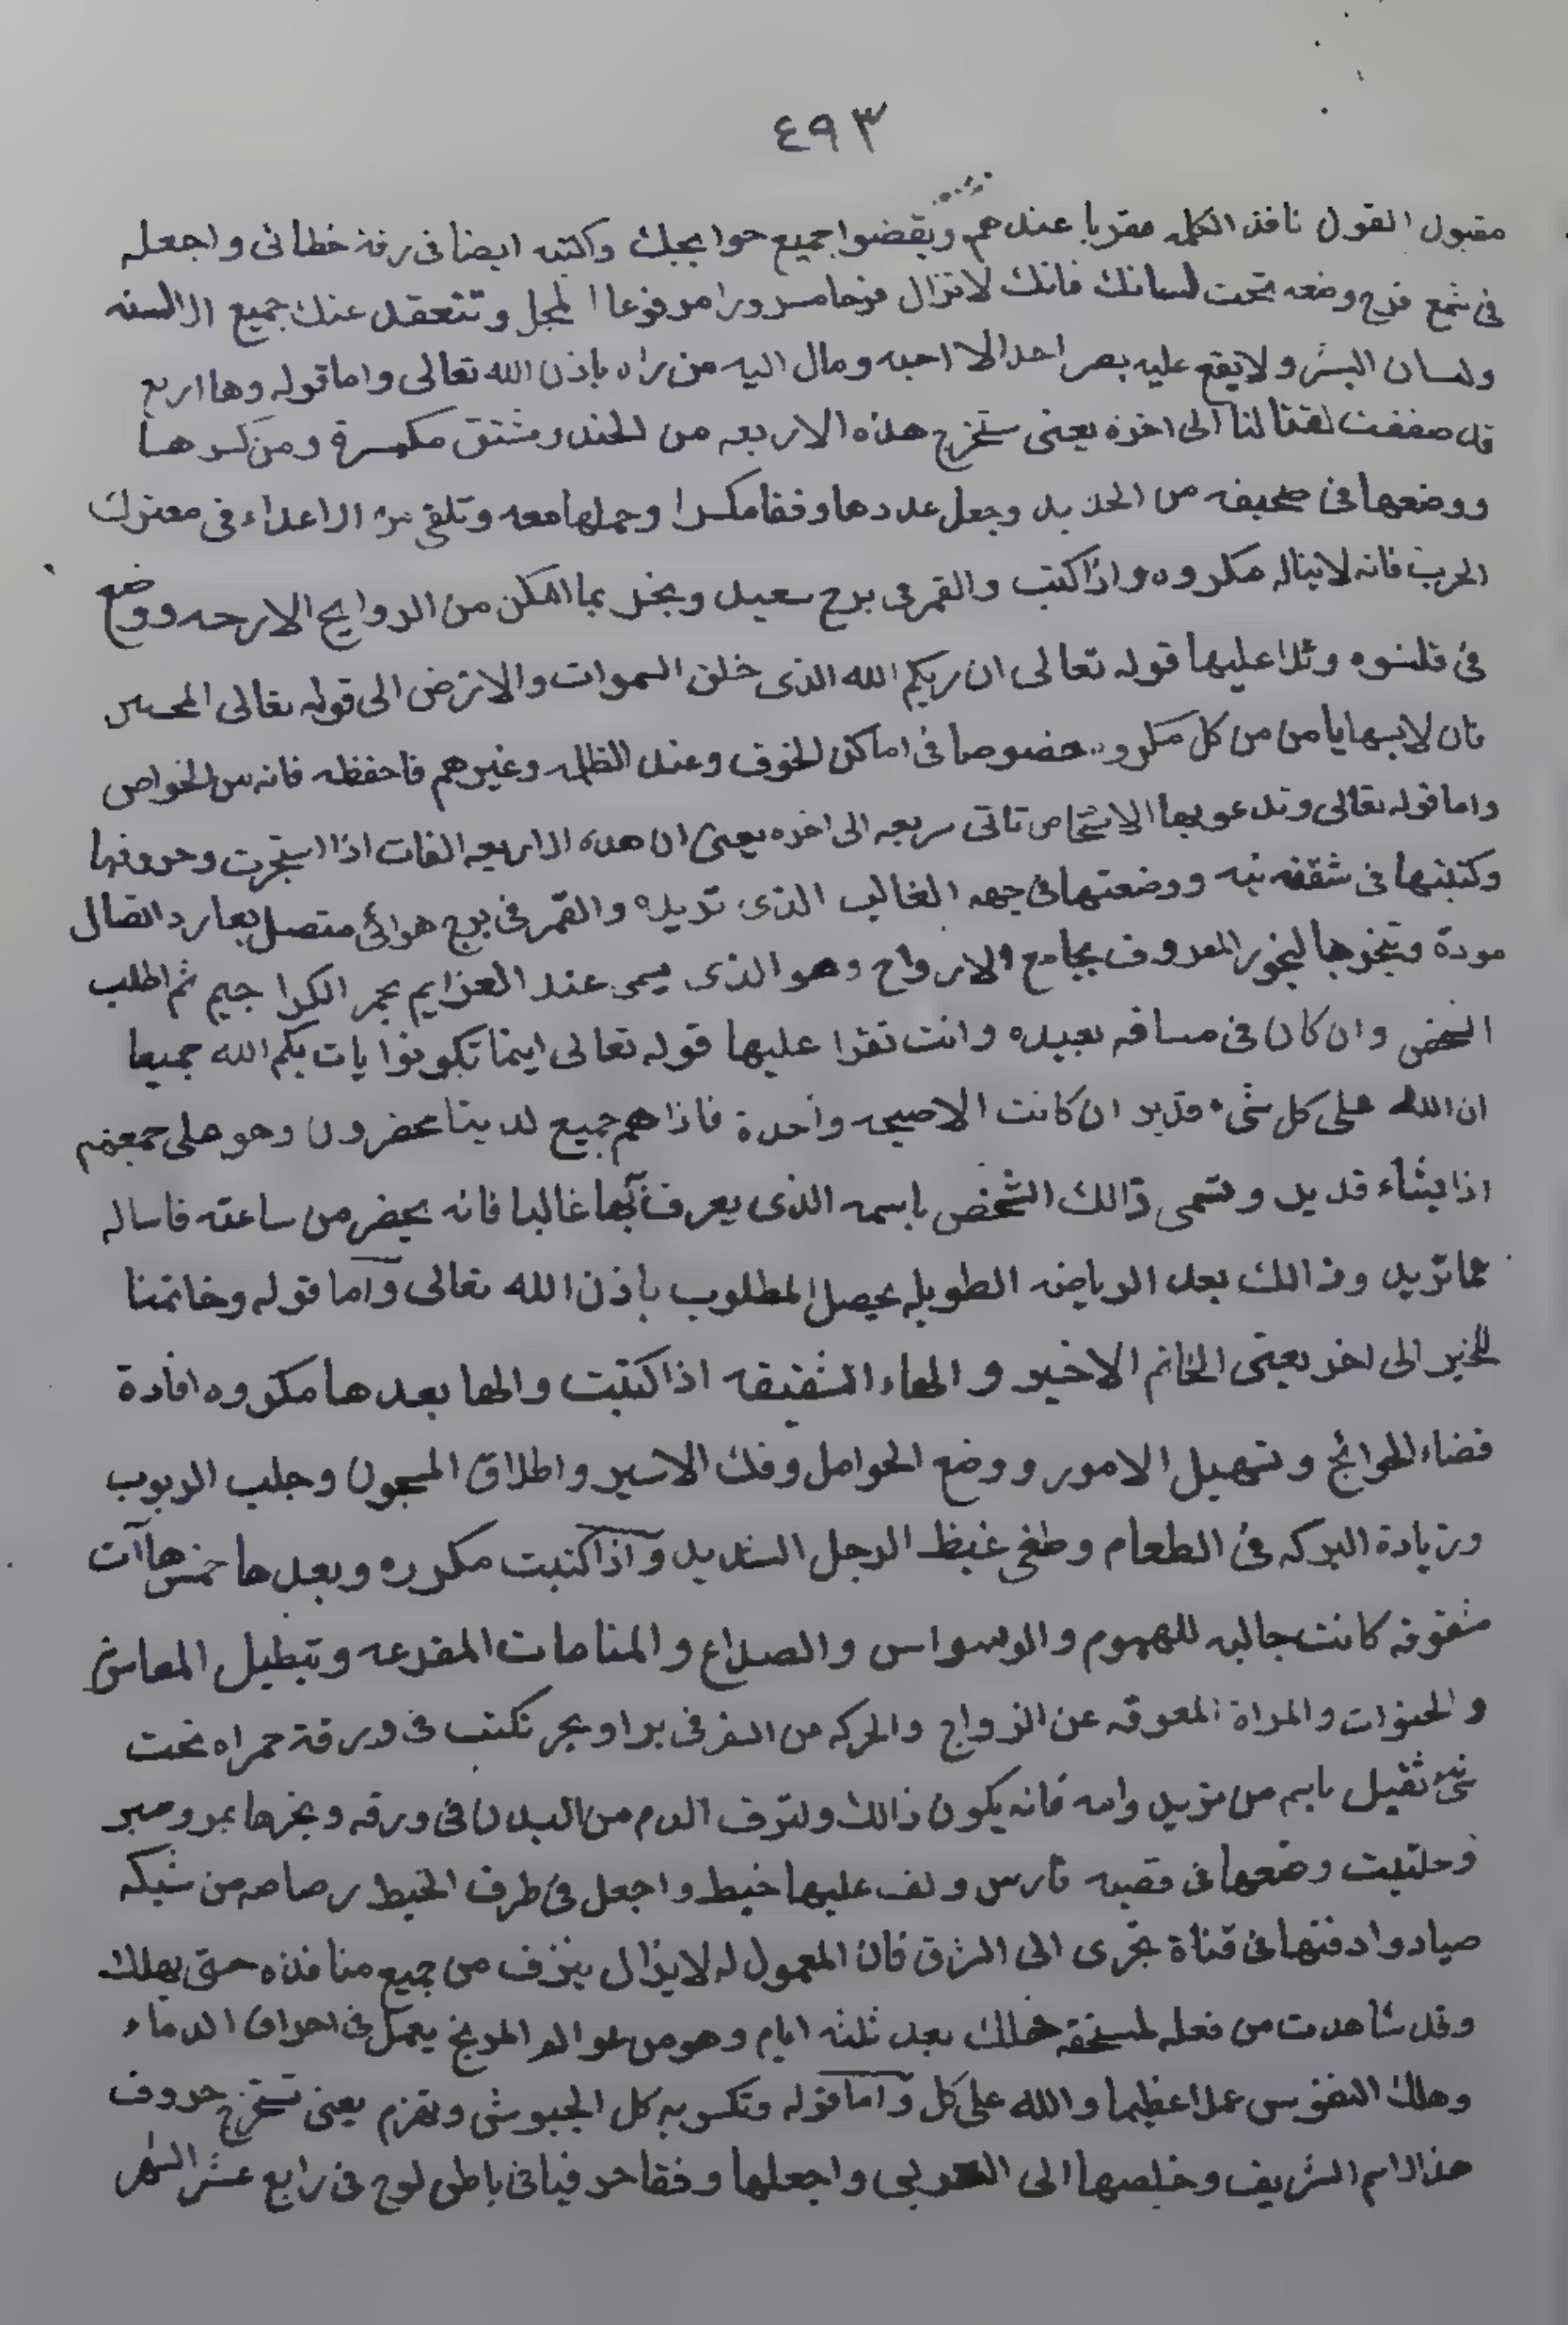 ٤٩٣
مقبول القول نافذ الكلمه مقربا عندهم ويقضوا جميع حوايجك واكتبه ايضا فى رقة خطائى واجعله
فى شمع فرج وضعه تحت لسانك فانك لا تزال فرحا مسرورا مرفوعا المحل وتنعقد عنك جميع الالسنه
ولسان البشر ولا يقع عليه بصر احد الا احبه ومال اليه من راه باذن الله تعالى واما قوله وها اربع
قد صففت لقتالنا الى اخره يعنى ستخرج هذه الاربعه من مكسرة ومن كسرها
ووضعها فى صحيفه من الحديد وجعل عددها وفقا مكسرا وحملها معه وتلقى بها الاعداء فى معترك
الحرب فانه لا يناله مكروه واذا كتب والقمر فى برج سعيد وبخر بما امكن من الروايح الارجه ووضع
فى قلنسوه وتلا عليها قوله تعالى ان ربكم الله الذى خلق السموات والارض الى قوله تعالى المحسنين
فان لابسها يامن من كل مكروه خصوصا فى اماكن الخوف وعند الظلمه وغيرهم فاحفظه فانه من الخواص
واما قوله تعالى وتدعو بها الاشخاص تاتى سريعه الى اخره يعنى ان هذه الاربعه الفات اذا استخرجت وحروفها
وكتبتها فى شقفه نيه ووضعتها فى جهه الغالب الذى تريده والقمر فى برج هوائى متصل بعطارد اتصال
مودة وتبخرها لبخور المعروف بجامع الارواح وهو الذى يسمى عند العزايم بحجر الكرا جيم ثم اطلب
الشخص وان كان فى مسافه بعيده وانت تقرا عليها قوله تعالى اينما تكونوا يات بكم الله جميعا
ان الله على كل شىء قدير ان كانت الا صيحه واحدة فاذا هم جميع لدينا محضرون وهو على جمعهم
اذا يشاء قدير وتسمى ذالك الشخص باسمه الذى يعرف بها غالبا فانه يحضر من ساعته فاساله
عما تريد وذالك بعد الرياضه الطويله يحصل المطلوب باذن الله تعالى واما قوله وخاتمنا
للخير الى اخر يعنى الخاتم الاخير والهاء الشقيقه اذا كتبت والها بعدها مكروه افادة
قضاء الحوائج وتسهيل الامور ووضع الحوامل وفك الاسير واطلاق المسجون وجلب الزبوب
وزيادة البركه فى الطعام وطفى غيظ الرجل الشديد واذا كتبت مكرره وبعدها خمس هاآت
مشقوقه كانت جالبه للهموم والوسواس والصداع والمنامات المفزعه وتبطيل المعاش
والحنوات والمراة المعوقه عن الزواج والحركه من السفر فى بر او بحر تكتب فى ورقة حمراه تحت
شىء ثقيل باسم من تريد وامه فانه يكون ذالك ولنزف الدم من البدن فى ورقه وبخرها بمر وصبر
وحلتيت وضعها فى قصبه فارس ولف عليها خيط واجعل فى طرف الخيط رصاصه من شبكه
صياد وادفنها فى قناة تجرى الى الشرق فان المعمول له لا يزال ينزف من جميع منافذه حتى يهلك
وقد شاهدت من فعله لمستحقه هلك بعد ثلثه ايام وهو من عوالم المريخ يعمل فى احراق الدماء
وهلك النفوس عملا عظيما والله على كل واما قوله وتكسر به كل الجيوش وتهزم يعنى تستخرج حروف
هذا الاسم الشريف وخلصها الى العربى واجعلها وفقا حرفيا فى باطن لوح فى رابع عشر الشهر